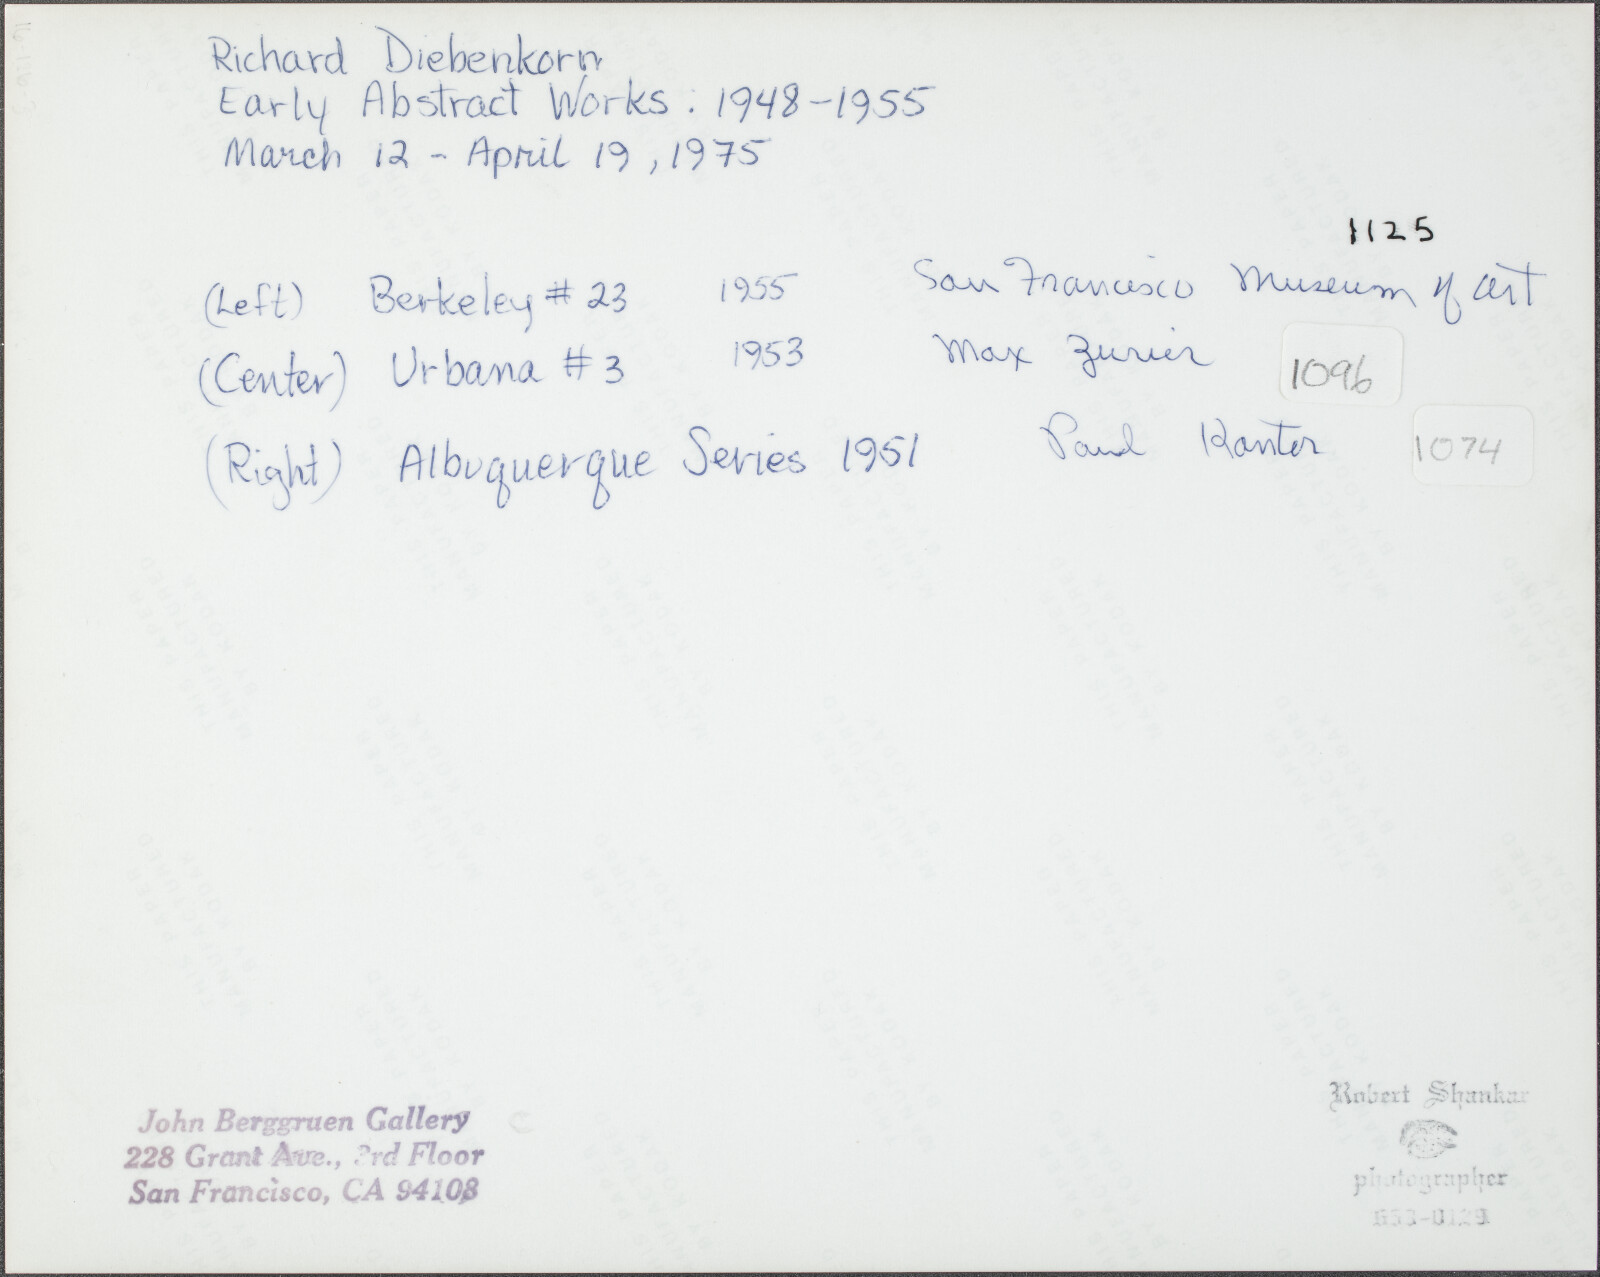 Richard Diebenkorn
Early Abstract Works : 1948-1955
March 12 - April 19, 1975
1125
(Left) Berkeley # 23 1955 San Francisco Museum of Art
(Center) Urbana # 3 1953 Max Zurier 1096
(Right) Albuquerque Series 1951 Paul Kanter 1074
John Berggruen Gallery
228 Grant Ave., 3rd Floor
San Francisco, CA 94108
Robert Shankar
photographer
THIS PAPER
MANUFACTURED
BY KODAK